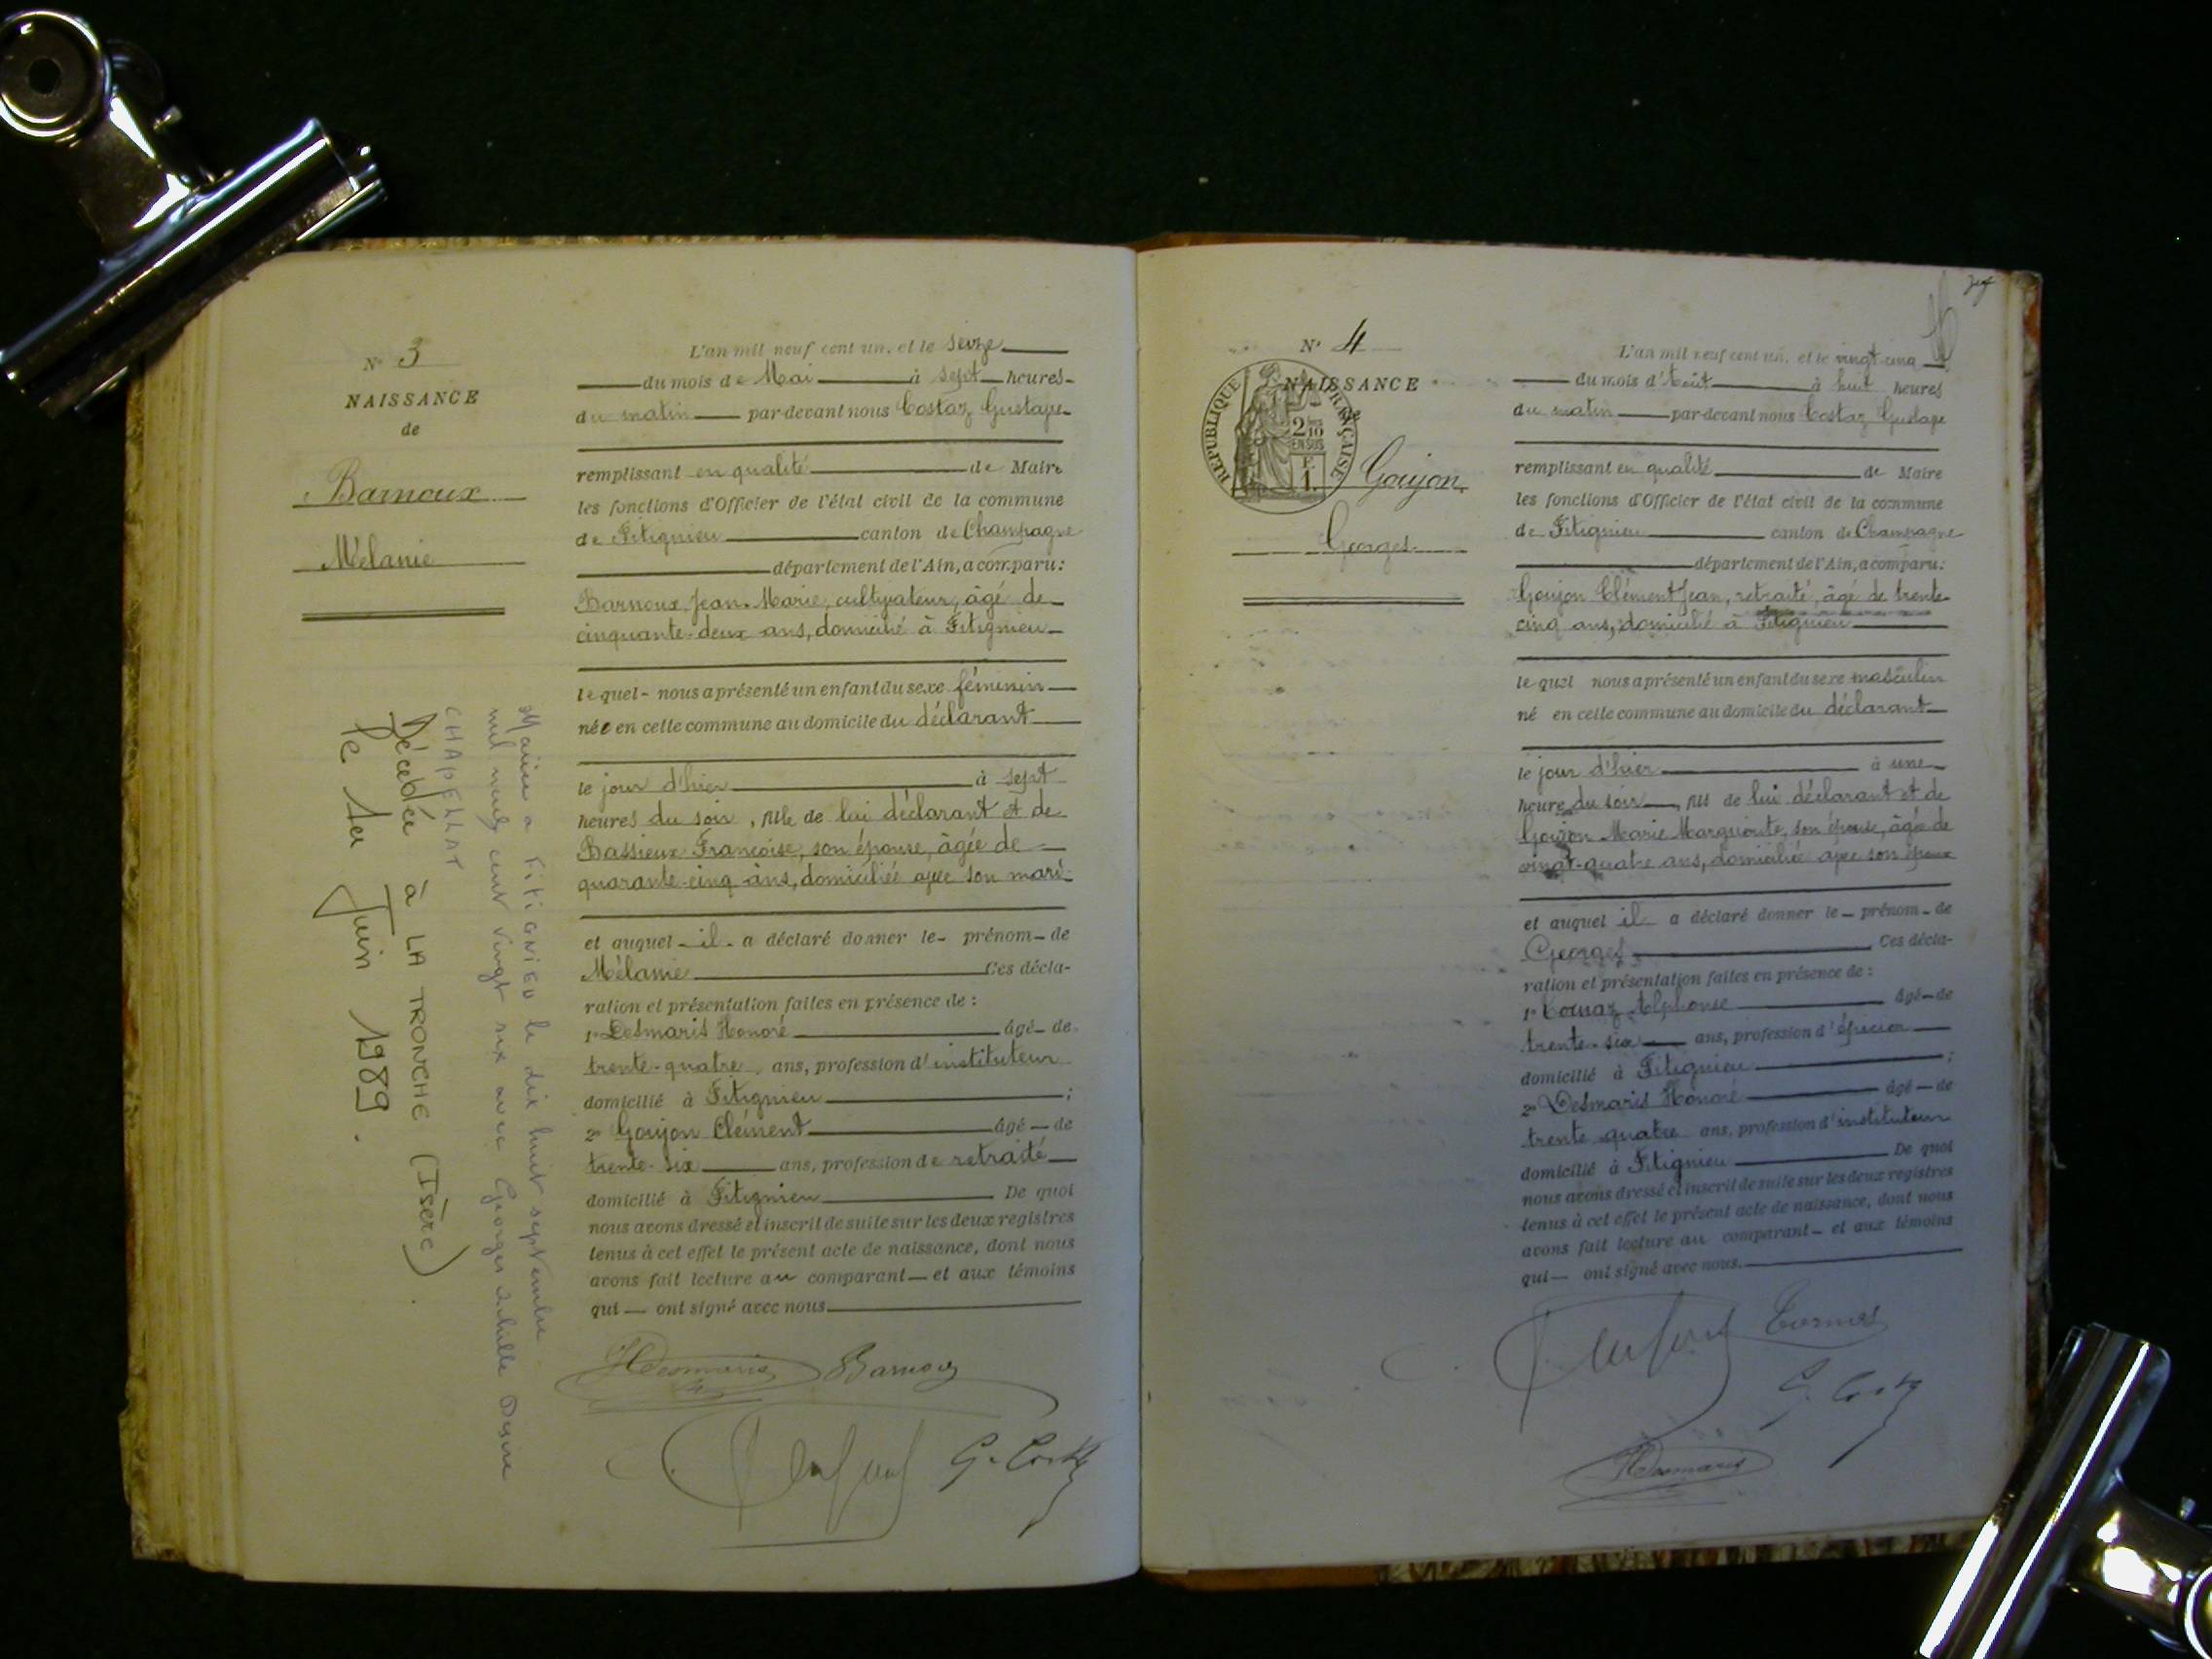 N° 3
NAISSANCE
de
Barnoux
Mélanie
L'an mil neuf cent un, et le seize
du mois de Mai à sept heures
du matin par-devant nous Costaz Gustave
remplissant en qualité de Maire
les fonctions d'Officier de l'état civil de la commune
de Fitignieu canton de Champagne
département de l'Ain, a comparu:
Barnoux Jean-Marie, cultivateur, âgé de
cinquante-deux ans, domicilié à Fitignieu
lequel nous a présenté un enfant du sexe féminin
née en cette commune au domicile du déclarant
le jour d'hier à sept
heures du soir, fille de lui déclarant et de
Bassieux Françoise, son épouse, âgée de
quarante-cinq ans, domiciliée avec son mari
et auquel il a déclaré donner le prénom de
Mélanie Ces décla-
ration et présentation faites en présence de :
1° Desmaris Honoré âgé de
trente-quatre ans, profession d'instituteur
domicilié à Fitignieu ;
2° Goujon Clément âgé de
trente-six ans, profession de retraité
domicilié à Fitignieu De quoi
nous avons dressé et inscrit de suite sur les deux registres
tenus à cet effet le présent acte de naissance, dont nous
avons fait lecture au comparant et aux témoins
qui ont signé avec nous.
HDesmaris Barnoux
G. Costaz
Mariée a FITIGNIEU le dix huit septembre
mil neuf cent vingt six avec Georges Achille Désiré
CHAPELLAT
Décédée à LA TRONCHE (Isère)
le 1er Juin 1989.
N° 4
NAISSANCE
de
RÉPUBLIQUE FRANÇAISE
2/10
EN SUS
F.
1.
Goujon
Georges
L'an mil neuf cent un, et le vingt-cinq
du mois d'Août à huit heures
du matin par-devant nous Costaz Gustave
remplissant en qualité de Maire
les fonctions d'Officier de l'état civil de la commune
de Fitignieu canton de Champagne
département de l'Ain, a comparu:
Goujon Clément Jean, retraité, âgé de trente
cinq ans, domicilié à Fitignieu
lequel nous a présenté un enfant du sexe masculin
né en cette commune au domicile du déclarant
le jour d'hier à une
heure du soir, fils de lui déclarant et de
Goujon Marie Marguerite, son épouse, âgée de
vingt-quatre ans, domiciliée avec son époux
et auquel il a déclaré donner le prénom de
Georges Ces décla-
ration et présentation faites en présence de :
1° Cornaz Alphonse âgé de
trente-six ans, profession d'épicier
domicilié à Fitignieu ;
2° Desmaris Honoré âgé de
trente quatre ans, profession d'instituteur
domicilié à Fitignieu De quoi
nous avons dressé et inscrit de suite sur les deux registres
tenus à cet effet le présent acte de naissance, dont nous
avons fait lecture au comparant et aux témoins
qui ont signé avec nous.
G. Costaz
HDesmaris